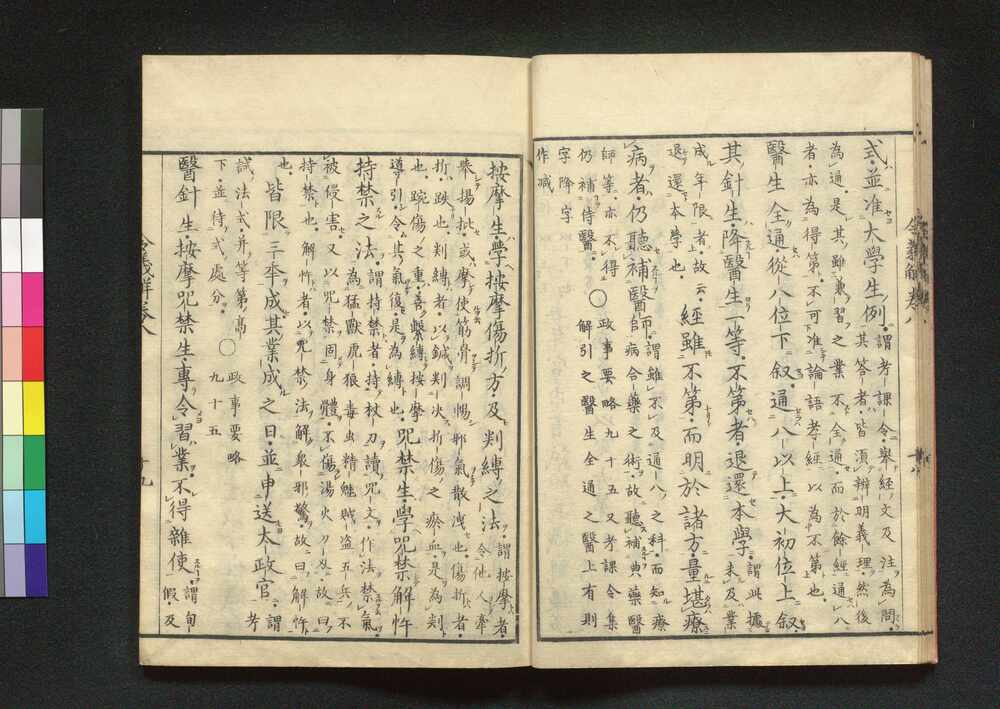 式並准大学生例謂考課令擧経文及注為問
其答者皆須辨明義理然後
為通是其雖兼習之業不全通而於餘経通八
者亦為得第不可下准論語孝経以為不第上也
醫生全通従八位下叙通八以上大初位上叙
其針生降醫生一等不第者退還本學謂此據
未及業
成年限者故云
退還本学也
経雖不第而明於諸方量堪療
病者仍聽補醫師謂雖不及通八之科而知療
病合藥之術故聽補典藥醫
師等亦不得
仍補侍醫
○政事要略九十五又考課令集
解引之醫生全通之醫上有則
字降字
作減
按摩生學按摩傷折方及判縛之法謂按摩者
令他人牽
擧揚批或摩使筋骨調暢邪氣散洩也傷折者
折跌也判縛者以鍼判决折傷之瘀血是為判
也踠傷之重善繫縛按摩
導引令其氣復是為縛也
咒禁生學咒禁解忤
持禁之法謂持禁者持杖刀讀咒文作法禁氣
為猛獣虎狼毒虫精魅賊盗五兵不
被侵害又以咒禁固身體不傷湯火刀刃故曰
持禁也解忤者以咒禁法解衆邪驚故曰解忤
也
皆限三年成其業成之日並申送太政官謂
考
試法式并等第高
下並待式處分
○政事要略
九十五
醫針生按摩咒禁生專令習業不得雜使謂旬
假及
令義解卷八
十九